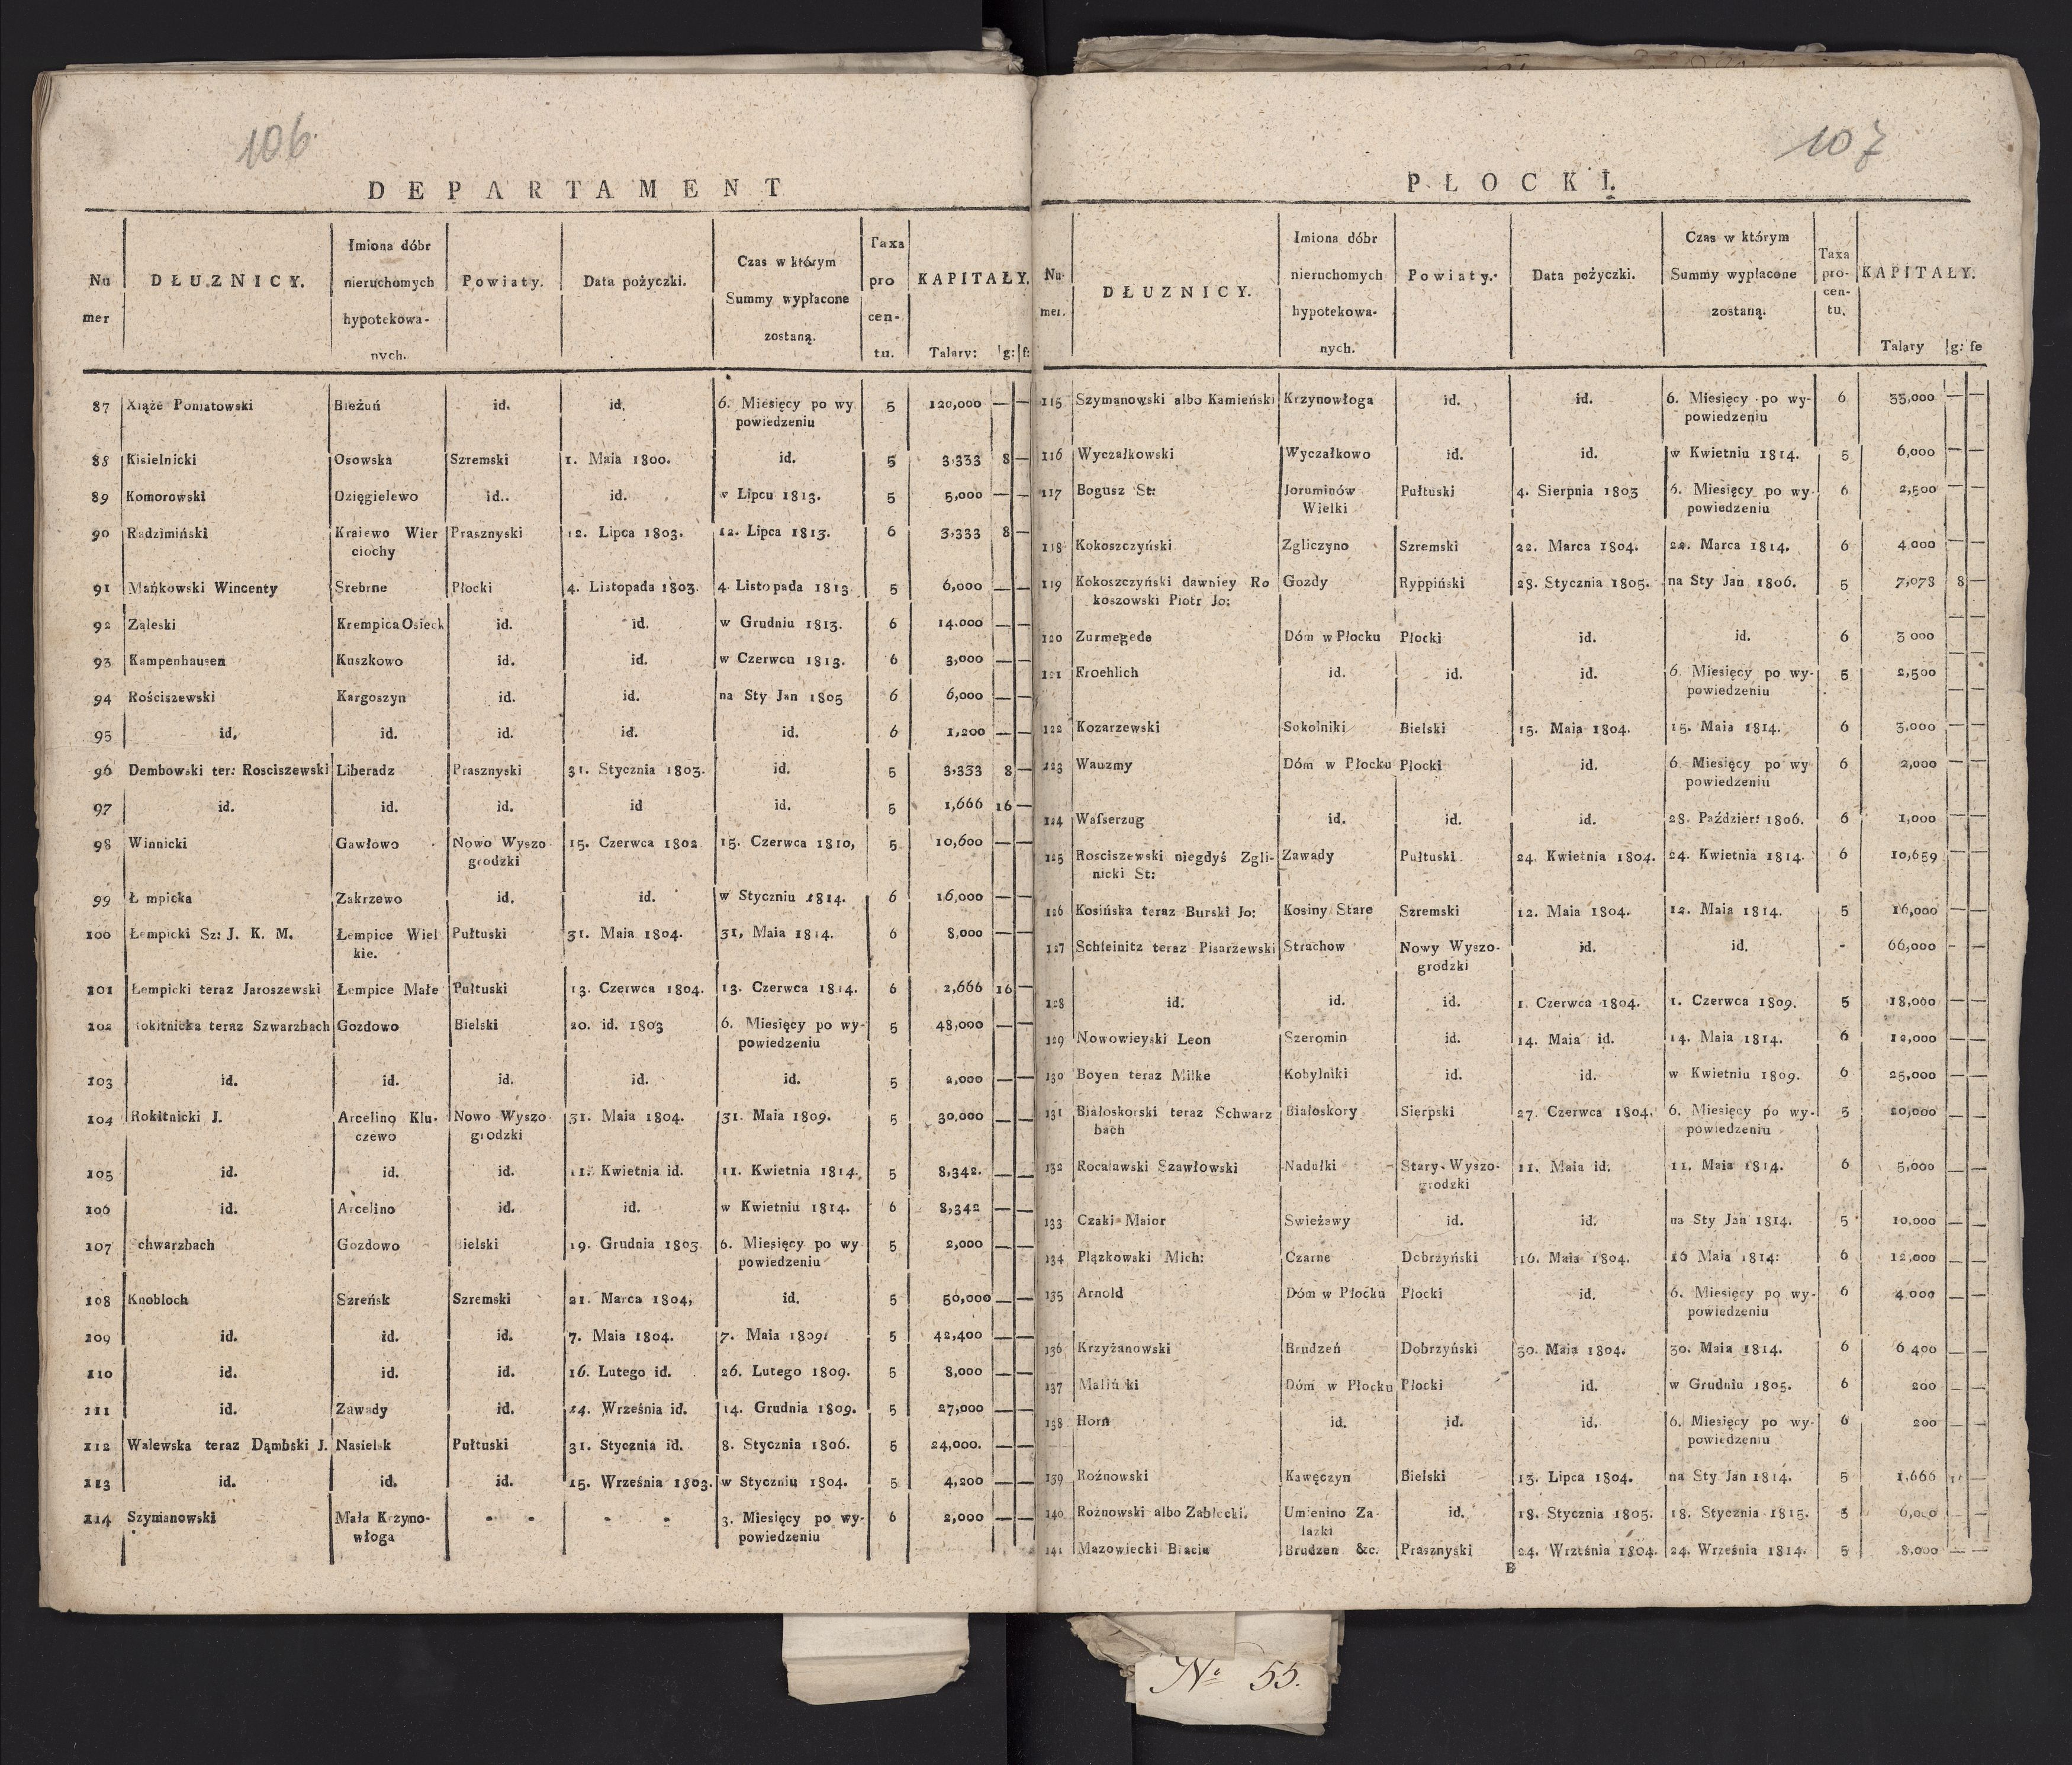 106
DEPARTAMENT
Nu mer | DŁUZNICY. | Imiona dóbr nieruchomych hypotekowa- nych. | Powiaty. | Data pożyczki. | Czas w którym Summy wypłacone zostaną. | Taxa pro cen- tu. | KAPITAŁY. Talary: g: f:
87 Xiąże Poniatowski Bieżuń id. id. 6. Miesięcy po wy 5 120,000 — —
powiedzeniu
88 Kisielnicki Osowska Szremski 1. Maia 1800. id. 5 3,333 8 —
89 Komorowski Dzięgielewo id.. id. w Lipcu 1813. 5 5,000 — —
90 Radzimiński Kraiewo Wier Prasznyski 12. Lipca 1803. 12. Lipca 1813. 6 3,333 8 —
ciochy
91 Mańkowski Wincenty Srebrne Płocki 4. Listopada 1803. 4. Listopada 1813 5 6,000 — —
92 Zaleski Krempica Osieck id. id. w Grudniu 1813. 6 14.000 — —
93 Kampenhausen Kuszkowo id. id. w Czerwcu 1813. 6 3,000 — —
94 Rościszewski Kargoszyn id. id. na Sty Jan 1805 6 6,000 — —
95 id, id. id. id. id. 6 1,200 — —
96 Dembowski ter: Rosciszewski Liberadz Prasznyski 31. Stycznia 1803. id. 5 3,333 8 —
97 id. id. id. id id. 5 1,666 16 —
98 Winnicki Gawłowo Nowo Wyszo 15. Czerwca 1802 15. Czerwca 1810, 5 10,600 — —
grodzki
99 Ł mpicka Zakrzewo id. id. w Styczniu 1814. 6 16,000 — —
100 Łempicki Sz: J. K. M. Łempice Wiel Pułtuski 31. Maia 1804. 31, Maia 1814. 6 8,000 — —
kie.
101 Łempicki teraz Jaroszewski Łempice Małe Pułtuski 13. Czerwca 1804. 13. Czerwca 1814. 6 2,666 16 —
102 okitnicka teraz Szwarzbach Gozdowo Bielski 20. id. 1803 6. Miesięcy po wy- 5 48,000 — —
powiedzeniu
103 id. id. id. id. id. 5 2,000 — —
104 Rokitnicki J. Arcelino Klu- Nowo Wyszo 31. Maia 1804. 31. Maia 1809. 5 30,000 — —
czewo grodzki
105 id. id. id. 11. Kwietnia id. 11. Kwietnia 1814. 5 8,342. — —
106 id. Arcelino id. id. w Kwietniu 1814. 6 8,342 — —
107 chwarzbach Gozdowo Bielski 19. Grudnia 1803 6. Miesięcy po wy 5 2,000 — —
powiedzeniu
108 Knobloch Szreńsk Szremski 21. Marca 1804, id. 5 50,000 — —
109 id. id. id. 7. Maia 1804. 7. Maia 1809. 5 42,400 — —
110 id. id. id. 16. Lutego id. 26. Lutego 1809. 5 8,000 — —
111 id. Zawady id. 14. Września id. 14. Grudnia 1809. 5 27,000 — —
112 Walewska teraz Dąmbski J. Nasielsk Pułtuski 31. Stycznia id. 8. Stycznia 1806. 5 24,000. — —
113 id. id. id. 15. Września 1803. w Styczniu 1804. 5 4,200 — —
114 Szymanowski Mała Krzyno- - - - - 3. Miesięcy po wy- 6 2,000 — —
włoga powiedzeniu
107
PŁOCKI.
Nu- mer. | DŁUZNICY. | Imiona dóbr nieruchomych hypotekowa- nych. | Powiaty. | Data pożyczki. | Czas w którym Summy wypłacone zostaną. | Taxa pro- cen- tu. | KAPITAŁY. Talary g: fe
115 Szymanowski albo Kamieński Krzynowłoga id. id. 6. Miesięcy po wy- 6 33,000 — —
powiedzeniu
116 Wyczałkowski Wyczałkowo id. id. w Kwietniu 1814. 5 6,000 — —
117 Bogusz St: Joruminów Pułtuski 4. Sierpnia 1803 6. Miesięcy po wy- 6 2,500 — —
Wielki powiedzeniu
118 Kokoszczyński Zgliczyno Szremski 22. Marca 1804. 22. Marca 1814. 6 4,000 — —
119 Kokoszczyński dawniey Ro Gozdy Ryppiński 28. Stycznia 1805. na Sty Jan 1806. 5 7,078 8 —
koszowski Piotr Jo:
120 Zurmegede Dóm w Płocku Płocki id. id. 6 3 000 — —
121 Kroehlich id. id. id. 6. Miesięcy po wy- 5 2,500 — —
powiedzeniu
122 Kozarzewski Sokolniki Bielski 15. Maia 1804. 15. Maia 1814. 6 3,000 — —
123 Wauzmy Dóm w Płocku Płocki id. 6 Miesięcy po wy 6 2,000 — —
powiedzeniu
124 Waſserzug id. id. id. 28. Paździer: 1806. 6 1,000 — —
125 Rosciszewski niegdyś Zgli- Zawady Pułtuski 24. Kwietnia 1804. 24. Kwietnia 1814. 6 10,659 — —
nicki St:
126 Kosińska teraz Burski Jo: Kosiny Stare Szremski 12. Maia 1804. 12. Maia 1814. 5 16,000 — —
127 Schleinitz teraz Pisarzewski Strachow Nowy Wyszo- id. id. - 66,000 - —
grodzki
128 id. id. id. 1. Czerwca 1804. 1. Czerwca 1809. 5 18,000 — —
129 Nowowieyski Leon Szeromin id. 14. Maia id. 14. Maia 1814. 6 12,000 — —
130 Boyen teraz Milke Kobylniki id. id. w Kwietniu 1809. 6 25,000 — —
131 Białoskorski teraz Schwarz Białoskory Sierpski 27. Czerwca 1804. 6. Miesięcy po wy- 5 20,000 — —
bach powiedzeniu
132 Rocalawski Szawłowski Nadułki Stary-Wyszo- 11. Maia id. 11. Maia 1814. 6 5,000 — —
grodzki
133 Czaki Maior Swieżawy id. id. na Sty Jan 1814. 5 10,000 — —
134 Plązkowski Mich: Czarne Dobrzyński 16. Maia 1804. 16 Maia 1814: 6 12,000 — —
135 Arnold Dóm w Płocku Płocki id. 6. Miesięcy po wy- 6 4,000 — —
powiedzeniu
136 Krzyżanowski Brudzeń Dobrzyński 30. Maia 1804. 30. Maia 1814. 6 6 400 — —
137 Maliń ki Dóm w Płocku Płocki id. w Grudniu 1805. 6 200 — —
138 Horn id. id. id. 6. Miesięcy po wy- 6 200 — —
powiedzeniu
139 Roźnowski Kawęczyn Bielski 13. Lipca 1804. na Sty Jan 1814. 5 1,666 —
140 Rożnowski albo Zabłocki. Umienino Za- id. 18. Stycznia 1805. 18. Stycznia 1815. 5 6,000 — —
lazki
141 Mazowiecki Bracia Brudzen &c. Prasznyski 24. Września 1804. 24. Września 1814. 5 8,000 — —
E
No 55.